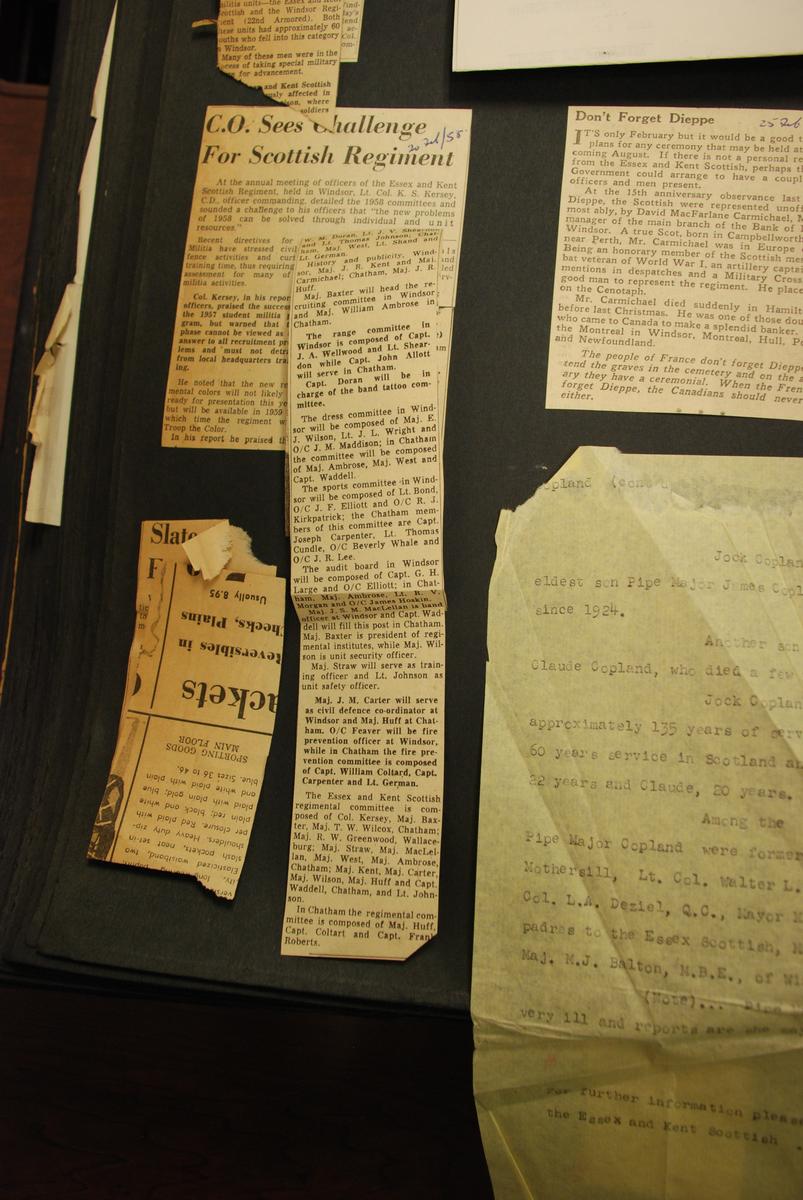 militia units—the Essex and
Scottish and the Windsor Regi-
ment (22nd Armored). Both
these units had approximately 60
youths who fell into this category
in Windsor.
Many of these men were in the
process of taking special military
for advancement.
and Kent Scottish
affected in
where
soldiers
C.O. Sees Challenge
For Scottish Regiment
At the annual meeting of officers of the Essex and Kent
Scottish Regiment, held in Windsor, Lt. Col. K. S. Kersey,
C.D., officer commanding, detailed the 1958 committees and
sounded a challenge to his officers that "the new problems
of 1958 can be solved through individual and unit
resources."
Recent directives for
Militia have stressed civil
fence activities and curt
training time, thus requiring
assessment for many of
militia activities.
Col. Kersey, in his repor
officers, praised the success
the 1957 student militia
gram, but warned that
phase cannot be viewed as
answer to all recruitment pr
lems and must not detr
from local headquarters tra
ing.
He noted that the new re
mental colors will not likely
ready for presentation this ye
but will be available in 1959
which time the regiment w
Troop the Color.
In his report he praised th
W. Doran, Lt. J. V.
and Lt. Thomas Johnson; Chat-
ham, Maj. West, Lt. Shand and
Lt. German.
History and publicity, Wind-
sor, Maj. J. R. Kent and Maj.
Carmichael; Chatham, Maj. J. R.
Huff.
Maj. Baxter will head the re-
cruiting committee in Windsor
and Maj. William Ambrose in
Chatham.
The range committee in
Windsor is composed of Capt.
J. A. Wellwood and Lt. Shear-
don while Capt. John Allott
will serve in Chatham.
Capt. Doran will be in
charge of the band tattoo com-
mittee.
The dress committee in Wind-
sor will be composed of Maj. E.
J. Wilson, Lt. J. L. Wright and
O/C J. M. Maddison; in Chatham
the committee will be composed
of Maj. Ambrose, Maj. West and
Capt. Waddell.
The sports committee in Wind-
sor will be composed of Lt. Bond,
O/C J. F. Elliott and O/C R. J.
Kirkpatrick; the Chatham mem-
bers of this committee are Capt.
Joseph Carpenter, Lt. Thomas
Cundle, O/C Beverly Whale and
O/C J. R. Lee.
The audit board in Windsor
will be composed of Capt. G. H.
Large and O/C Elliott; in Chat-
ham, Maj. Ambrose, Lt. R. V.
Morgan and O/C James Hoskin.
Maj. J. S. M. MacLellan is band
officer at Windsor and Capt. Wad-
dell will fill this post in Chatham.
Maj. Baxter is president of regi-
mental institutes, while Maj. Wil-
son is unit security officer.
Maj. Straw will serve as train-
ing officer and Lt. Johnson as
unit safety officer.
Maj. J. M. Carter will serve
as civil defence co-ordinator at
Windsor and Maj. Huff at Chat-
ham. O/C Feaver will be fire
prevention officer at Windsor,
while in Chatham the fire pre-
vention committee is composed
of Capt. William Coltard, Capt.
Carpenter and Lt. German.
The Essex and Kent Scottish
regimental committee is com-
posed of Col. Kersey, Maj. Bax-
ter, Maj. T. W. Wilcox, Chatham;
Maj. R. W. Greenwood, Wallace-
burg; Maj. Straw, Maj. MacLel-
lan, Maj. West, Maj. Ambrose,
Chatham; Maj. Kent, Maj. Carter,
Maj. Wilson, Maj. Huff and Capt.
Waddell, Chatham, and Lt. John-
son.
In Chatham the regimental com-
mittee is composed of Maj. Huff,
Capt. Coltart and Capt. Frank
Roberts.
Don't Forget Dieppe
IT'S only February but it would be a good t
plans for any ceremony that may be held at
coming August. If there is not a personal re
from the Essex and Kent Scottish, perhaps th
Government could arrange to have a coupl
officers and men present.
At the 15th anniversary observance last
Dieppe, the Scottish were represented unoff
most ably, by David MacFarlane Carmichael,
manager of the main branch of the Bank of
Windsor. A true Scot, born in Campbellworth
near Perth, Mr. Carmichael was in Europe
Being an honorary member of the Scottish mes
bat veteran of World War I, an artillery captai
mentions in despatches and a Military Cross
good man to represent the regiment. He place
on the Cenotaph.
Mr. Carmichael died suddenly in Hamilt
before last Christmas. He was one of those dou
who came to Canada to make a splendid banker.
the Montreal in Windsor, Montreal, Hull, Pe
and Newfoundland.
The people of France don't forget Dieppe
tend the graves in the cemetery and on the a
ary they have a ceremonial. When the Fren
forget Dieppe, the Canadians should never
either.
Slate
F
Usually 8.95
Checks, Plains
Reversibles in
ackets
SPORTING GOODS
MAIN FLOOR
blue. Sizes 36 to 46.
and white plaid with plain
plaid with plain gold; blue
plain red; black and white
per closure. Red plaid with
shoulders. Heavy duty zip-
slash pockets, neat set-in
Elasticized waistband, two
opland (cont
Jock Coplan
eldest son Pipe Major James Copl
since 1924.
Another son
Claude Copland, who died a few
Jock Coplan
approximately 135 years of serv
60 years service in Scotland an
22 years and Claude, 20 years.
Among the
Pipe Major Copland were former
Mothersill, Lt. Col. Walter L.
Col. L.A. Deziel, Q.C., Mayor M
padres to the Essex Scottish, M
Maj. M.J. Balton, M.B.E., of Wi
(Note)...
very ill and reports are she
For further information pleas
the Essex and Kent Scottish